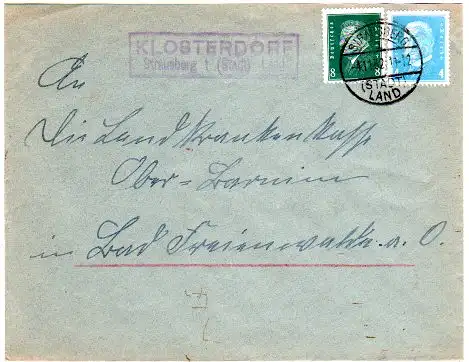 KLOSTERDORF
Strausberg 1 (Stadt) Land
Deutsches Reich
8 8
4
STRAUSBERG 1
(STADT)
LAND
An
Die Landkrankenkasse
Ober-Barnim
in Bad Freienwalde a. O.